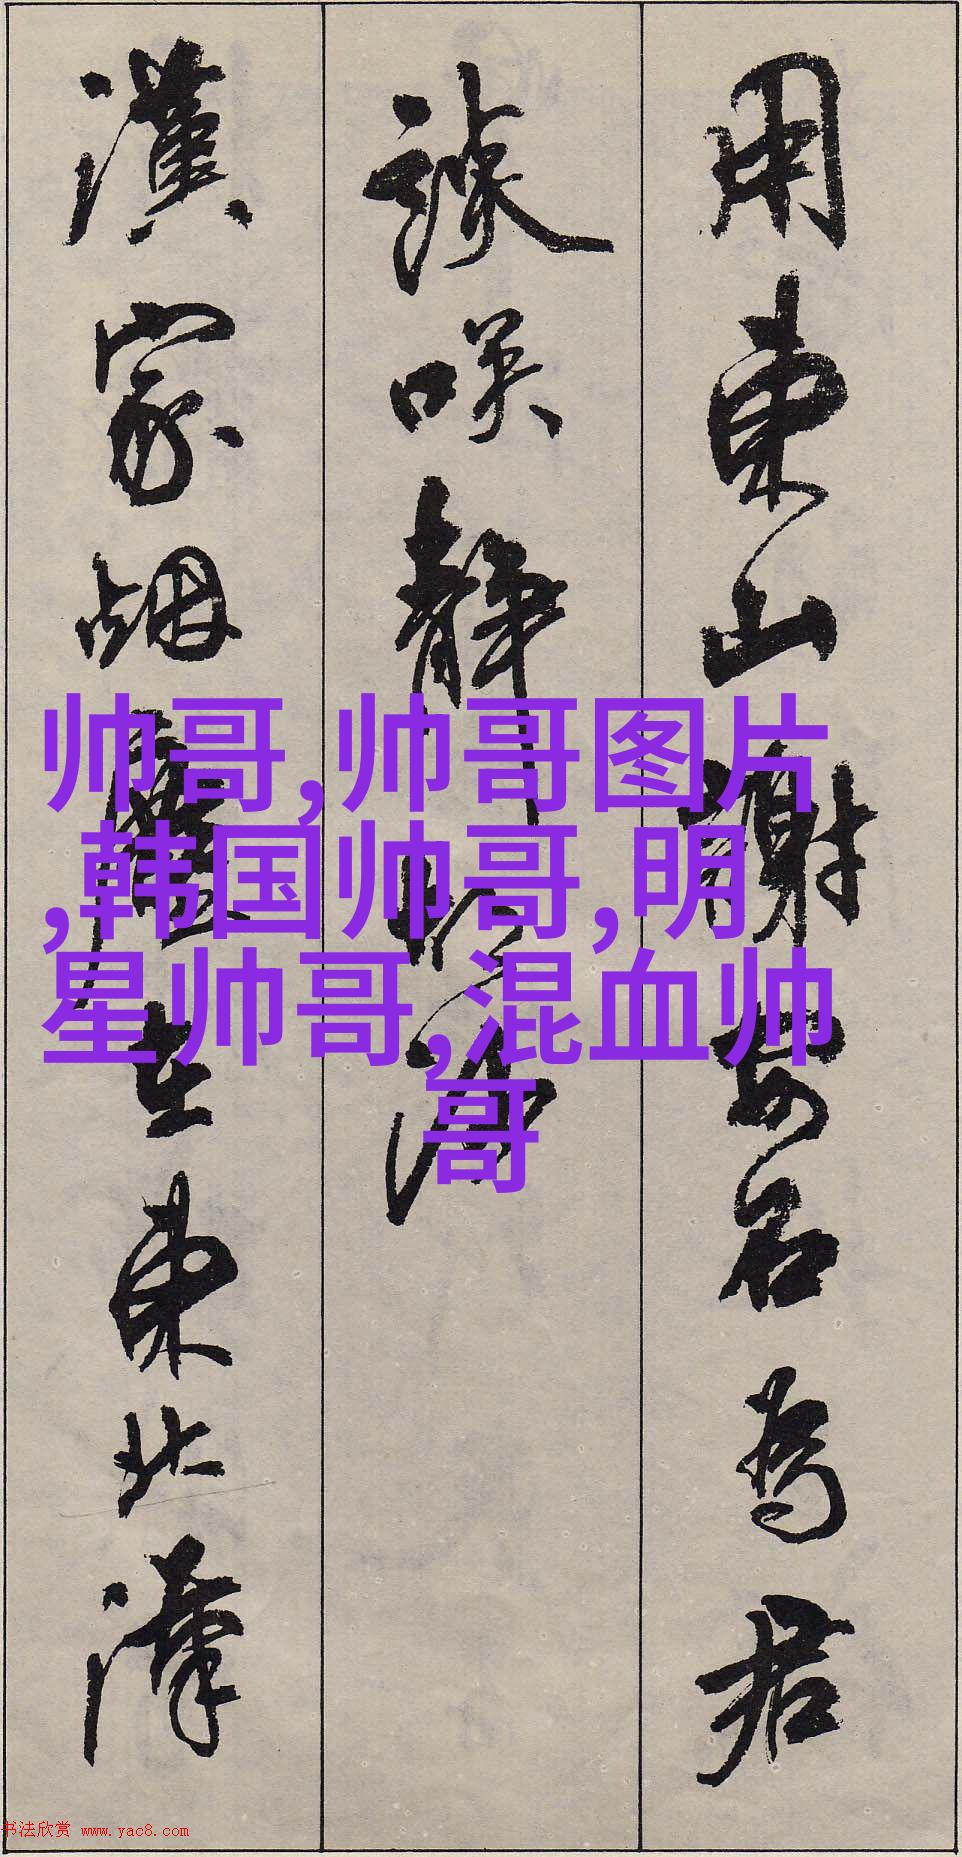 用東山謝安石為君
談咲静胡沙
漢家烟塵在東北漢
帅哥,帅哥图片
,韩国帅哥,明
星帅哥,混血帅
哥
书法欣赏 www.yac8.com